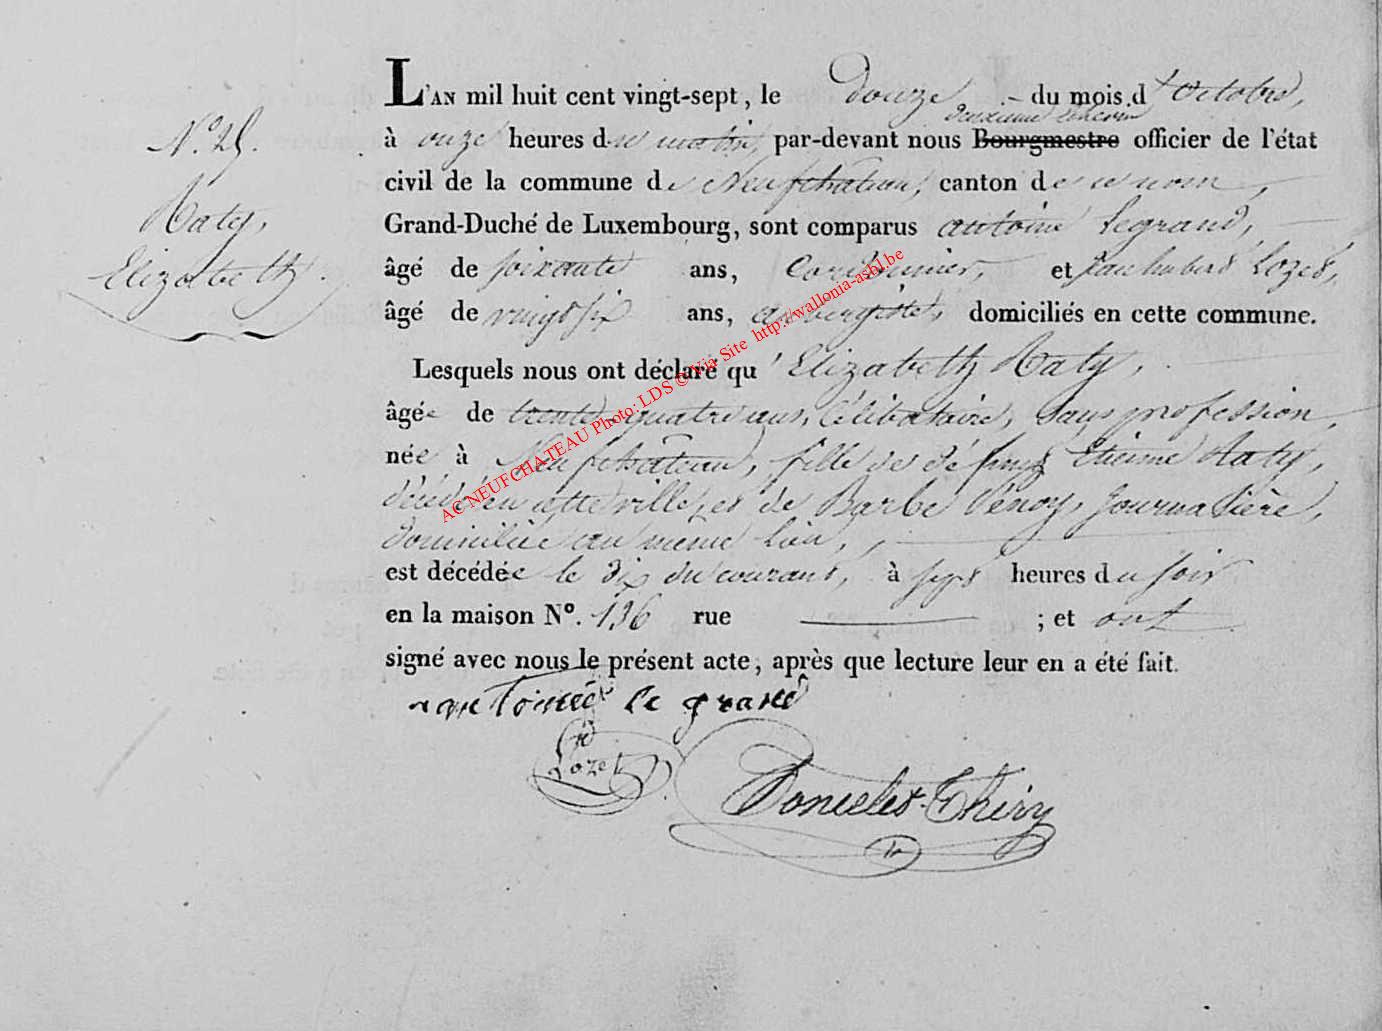 N.° 25.
Raty,
Elizabeth.
L'AN mil huit cent vingt-sept, le douze du mois d'octobre,
deuxième échevin
à onze heures du matin, par-devant nous Bourgmestre officier de l'état
civil de la commune de Neufchateau, canton de ce nom,
Grand-Duché de Luxembourg, sont comparus antoine Legrand,
âgé de soixante ans, Cordonnier, et Jean hubert Lozet,
âgé de vingt six ans, aubergiste, domiciliés en cette commune.
Lesquels nous ont déclaré qu'Elizabeth Raty,
âgée de trente-quatre ans, Célibataire, sans profession,
née à Neufchâteau, fille de défunt Etienne Raty,
décédé en cette ville, et de Barbe Pénoy, Journalière,
domiciliée au même lieu,
est décédée le dix du courant, à sept heures du soir
en la maison N°. 136 rue ; et ont
signé avec nous le présent acte, après que lecture leur en a été fait.
antoine le grand
Lozet
Doncelet-Thiry
AC NEUFCHATEAU Photo: LDS © Via Site http://wallonia-asbl.be